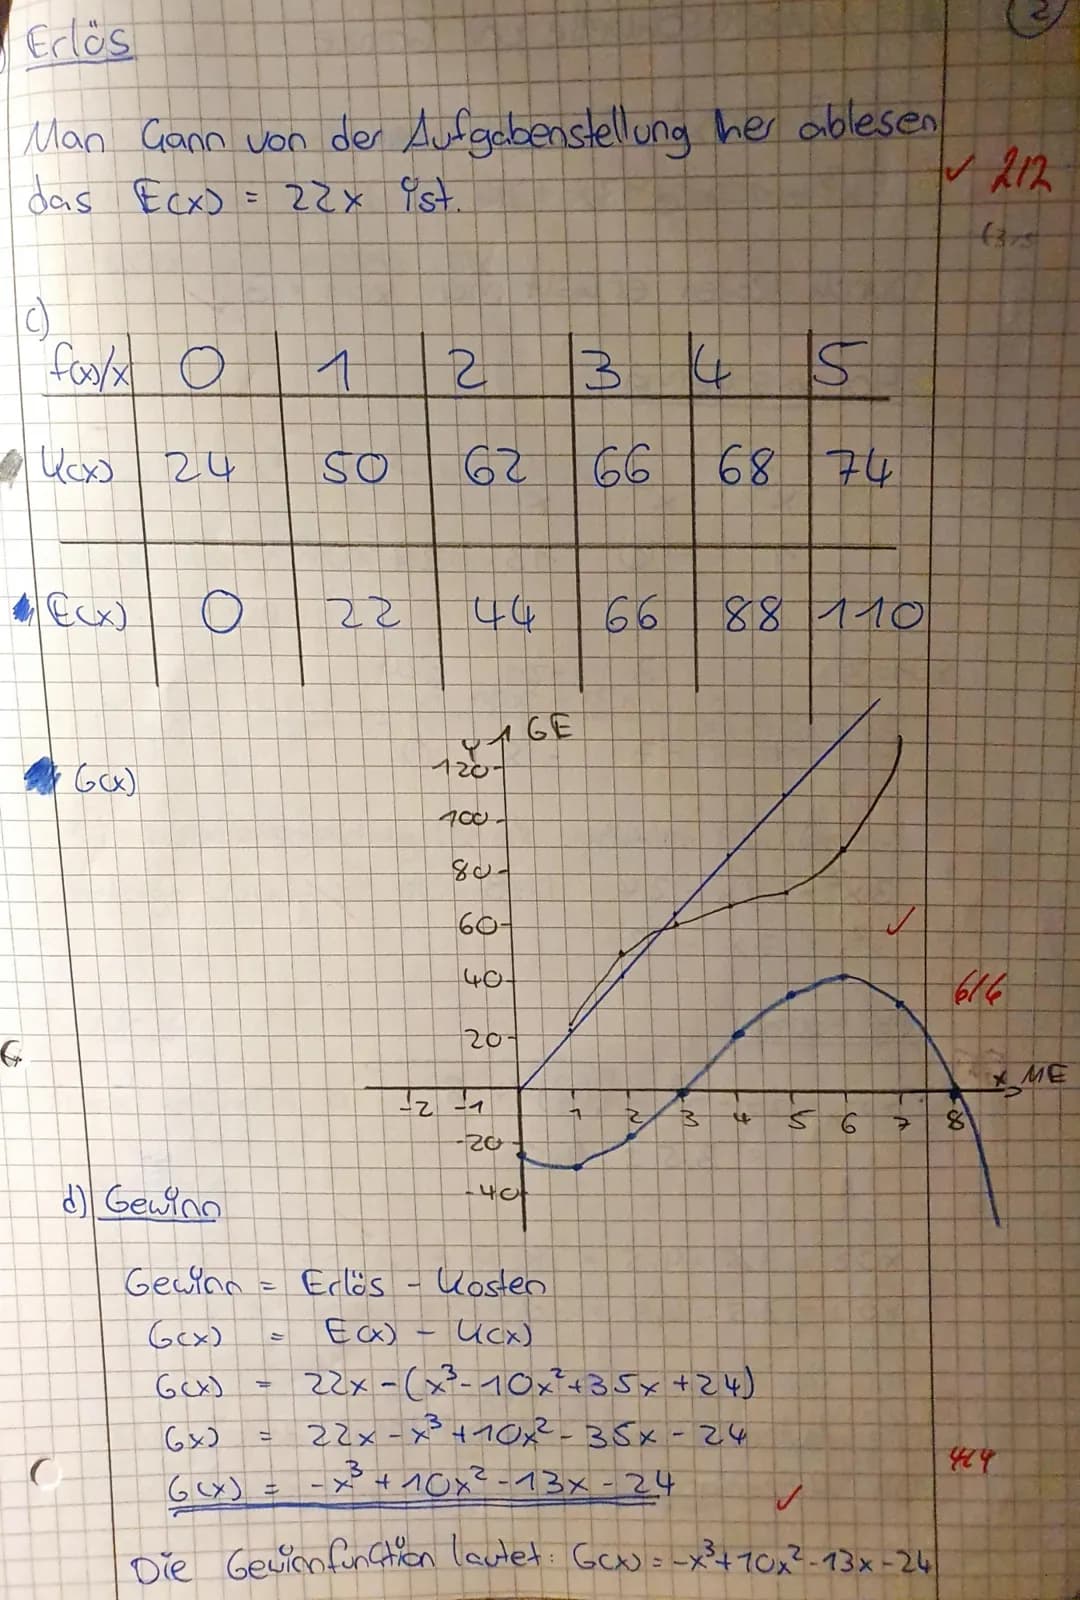 2
Erlös
Man kann von der Aufgabenstellung her ablesen
das E(x) = 22x ist.
✓ 2/2
c)
f(x)/x 0 1 2 3 4 5
K(x) 24 50 62 66 68 74
E(x) 0 22 44 66 88 110
G(x)
y GE
120
100
80
60
40
20
-20
-40
-2 -1 1 2 3 4 5 6 7 8
x ME
✓
6/6
d) Gewinn
Gewinn = Erlös - Kosten
G(x) = E(x) - K(x)
G(x) = 22x-(x³-10x²+35x+24)
G(x) = 22x-x³+10x²-35x-24
G(x) = -x³+10x²-13x-24
✓
4/4
Die Gewinnfunktion lautet: G(x)=-x³+10x²-13x-24